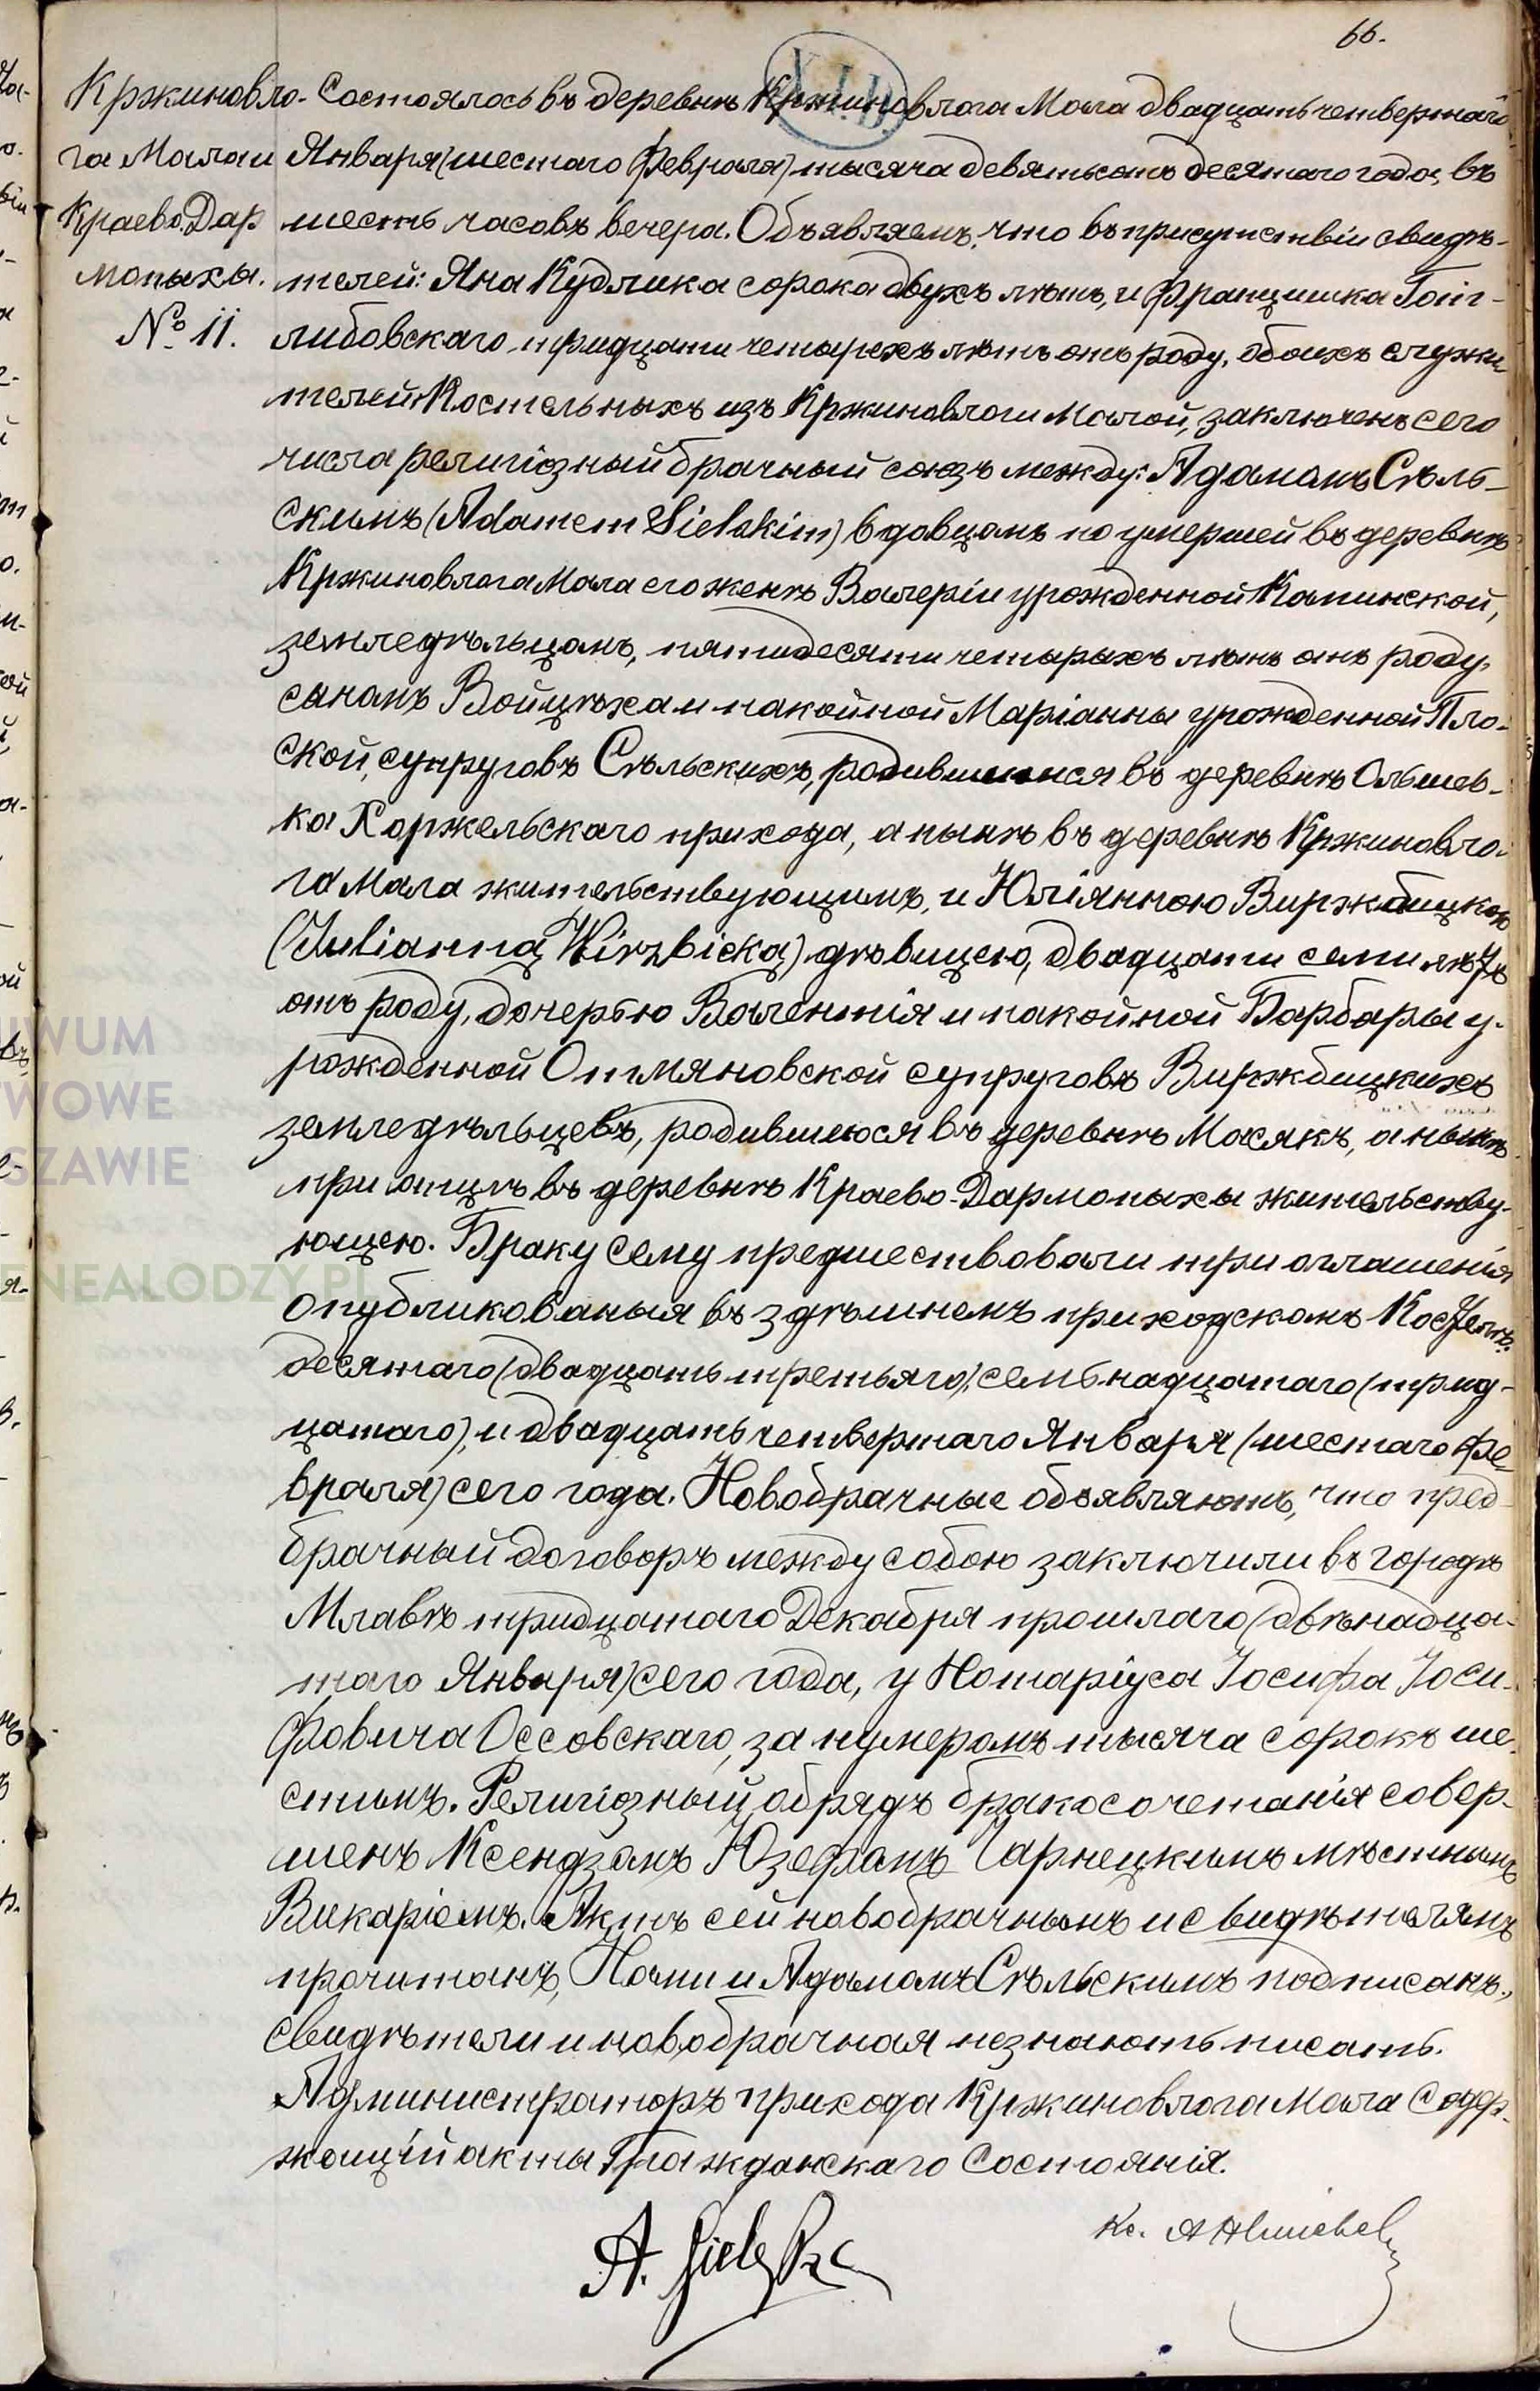 66.
Кржиновло-
га Мала и
Краево Дар
мопыхы.
№ 11.
Состоялось въ деревнѣ Кржиновлога Мала двадцать четвертаго
Января (шестаго Февраля) тысяча девятьсотъ десятаго года, въ
шесть часовъ вечера. Объявляемъ, что въ присутствіи свидѣ-
телей: Яна Кудлика сорока двухъ лѣтъ, и Францишка
либовскаго тридцати четырехъ лѣтъ отъ роду, обоихъ служи
телей Костельныхъ изъ Кржиновлоги Малой, заключенъ сего
числа религіозный брачный союзъ между: Адамомъ Сѣль-
скимъ (Adamem Sielskim) вдовцомъ по умершей въ деревнѣ
Кржиновлога Мала его женѣ Валеріи урожденной Капинской,
земледѣльцомъ, пятидесяти четырыхъ лѣтъ отъ роду,
сыномъ Войцѣха и покойной Маріанны урожденной Пло-
ской, супруговъ Сѣльскихъ, родившимся въ деревнѣ Ольшев-
ка Хоржельскаго прихода, а нынѣ въ деревнѣ Кржиновло-
га Мала жительствующимъ, и Юліянною Виржбицкою
(Julianną Wirzbicką) дѣвицею, двадцати семи лѣтъ
отъ роду, дочерью Валентія и покойной Барбары у-
рожденной Отмяновской супруговъ Виржбицкихъ
земледѣльцевъ, родившеюся въ деревнѣ Мосякъ, а нынѣ
при отцѣ въ деревнѣ Краево-Дармопыхы жительству-
ющею. Браку сему предшествовали три оглашенія
опубликованыя въ здѣшнемъ приходскомъ Костелѣ:
десятаго (двадцать третьяго), семьнадцатаго (трид-
цатаго), и двадцать четвертаго Января (шестаго Фе-
враля) сего года. Новобрачные объявляютъ, что пред-
брачный договоръ между собою заключили въ городѣ
Млавѣ тридцатаго Декабря прошлаго (двѣнадца-
таго Января) сего года, у Нотаріуса Іосифа Іоси-
фовича Оссовскаго, за нумеромъ тысяча сорокъ ше-
стымъ. Религіозный обрядъ бракосочетанія совер-
шенъ Ксендзомъ Юзефомъ Чарнецкимъ мѣстнымъ
Викаріемъ. Актъ сей новобрачнымъ и свидѣтелямъ
прочитанъ, Нами и Адамомъ Сѣльскимъ подписанъ.,
свидѣтели и новобрачная незнаютъ писать.
Администраторъ прихода Кржиновлога Мала Содер-
жащій акты Гражданскаго Состоянія.
A. Sielski
Кс.
IWUM
WOWE
SZAWIE
ENEALODZY.PL